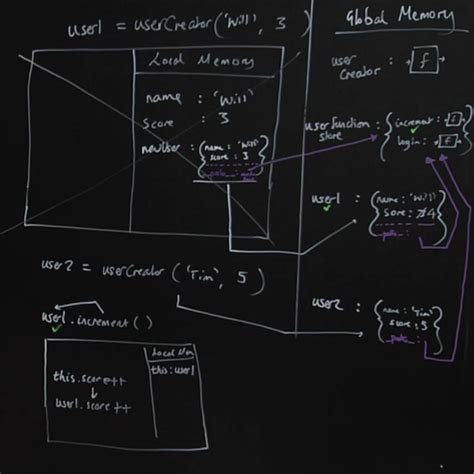 user1 = userCreator('Will', 3)
Local Memory
name : 'Will'
score : 3
newUser : {name : 'Will'
score : 3
user2 = userCreator('Tim', 5)
user1.increment()
Local Mem
this : user1
this.score++
↓
user1.score++
Global Memory
user
Creator : f
userfunction
store : {increment : f
login : f}
user1 : {name : 'Will'
score : 4
user2 : {name : 'Tim'
score : 5